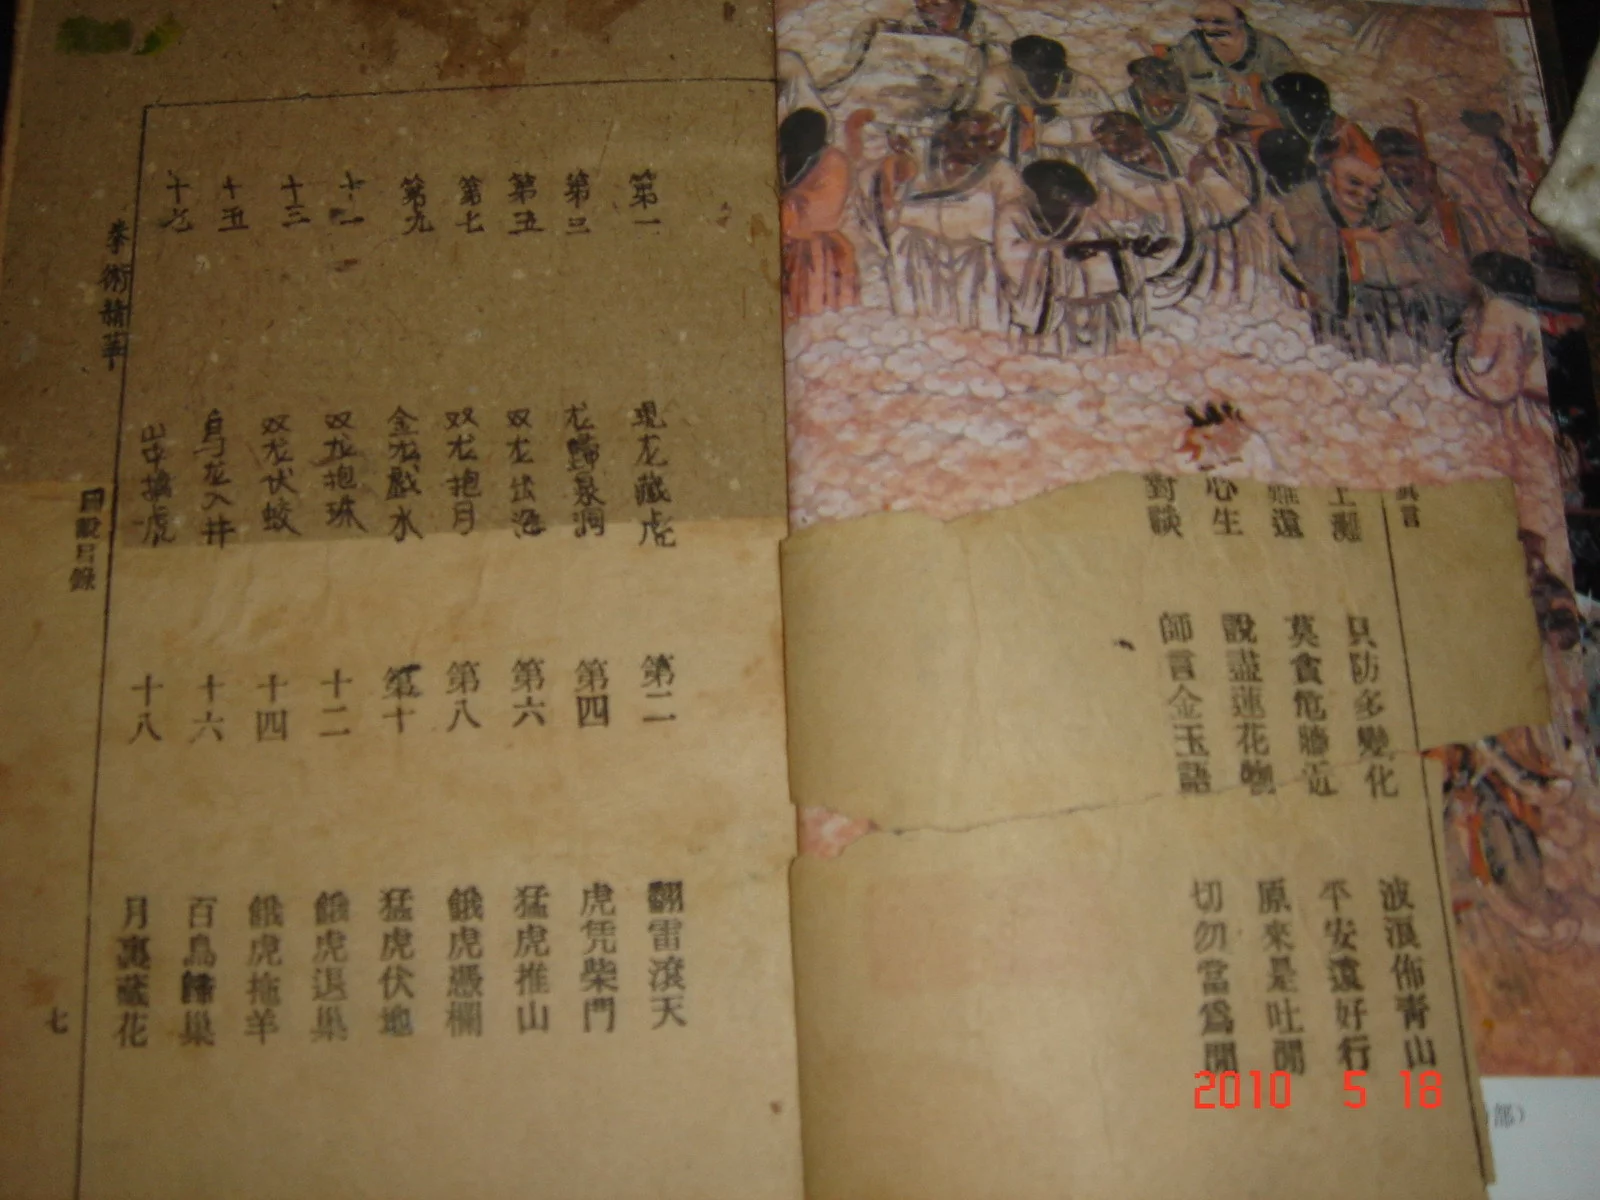 言
上灘 只防多變化 波浪佈青山
還 莫貪危牆近 平安還好行
心生 說盡蓮花物 原來是吐
對談 師言金玉語 切勿當為閒
第一 現龙藏虎 第二 翻雷滾天
第三 龙歸泉洞 第四 虎凭柴門
第五 双龙出海 第六 猛虎推山
第七 双龙抱月 第八 餓虎憑欄
第九 金龙戲水 第十 猛虎伏地
十一 双龙抱珠 十二 餓虎退巢
十三 双龙伏蛟 十四 餓虎拖羊
十五 乌龙入井 十六 百鳥歸巢
十七 山中擒虎 十八 月裏藏花
拳術精華 圖說目錄 七
部）
2010 5 18